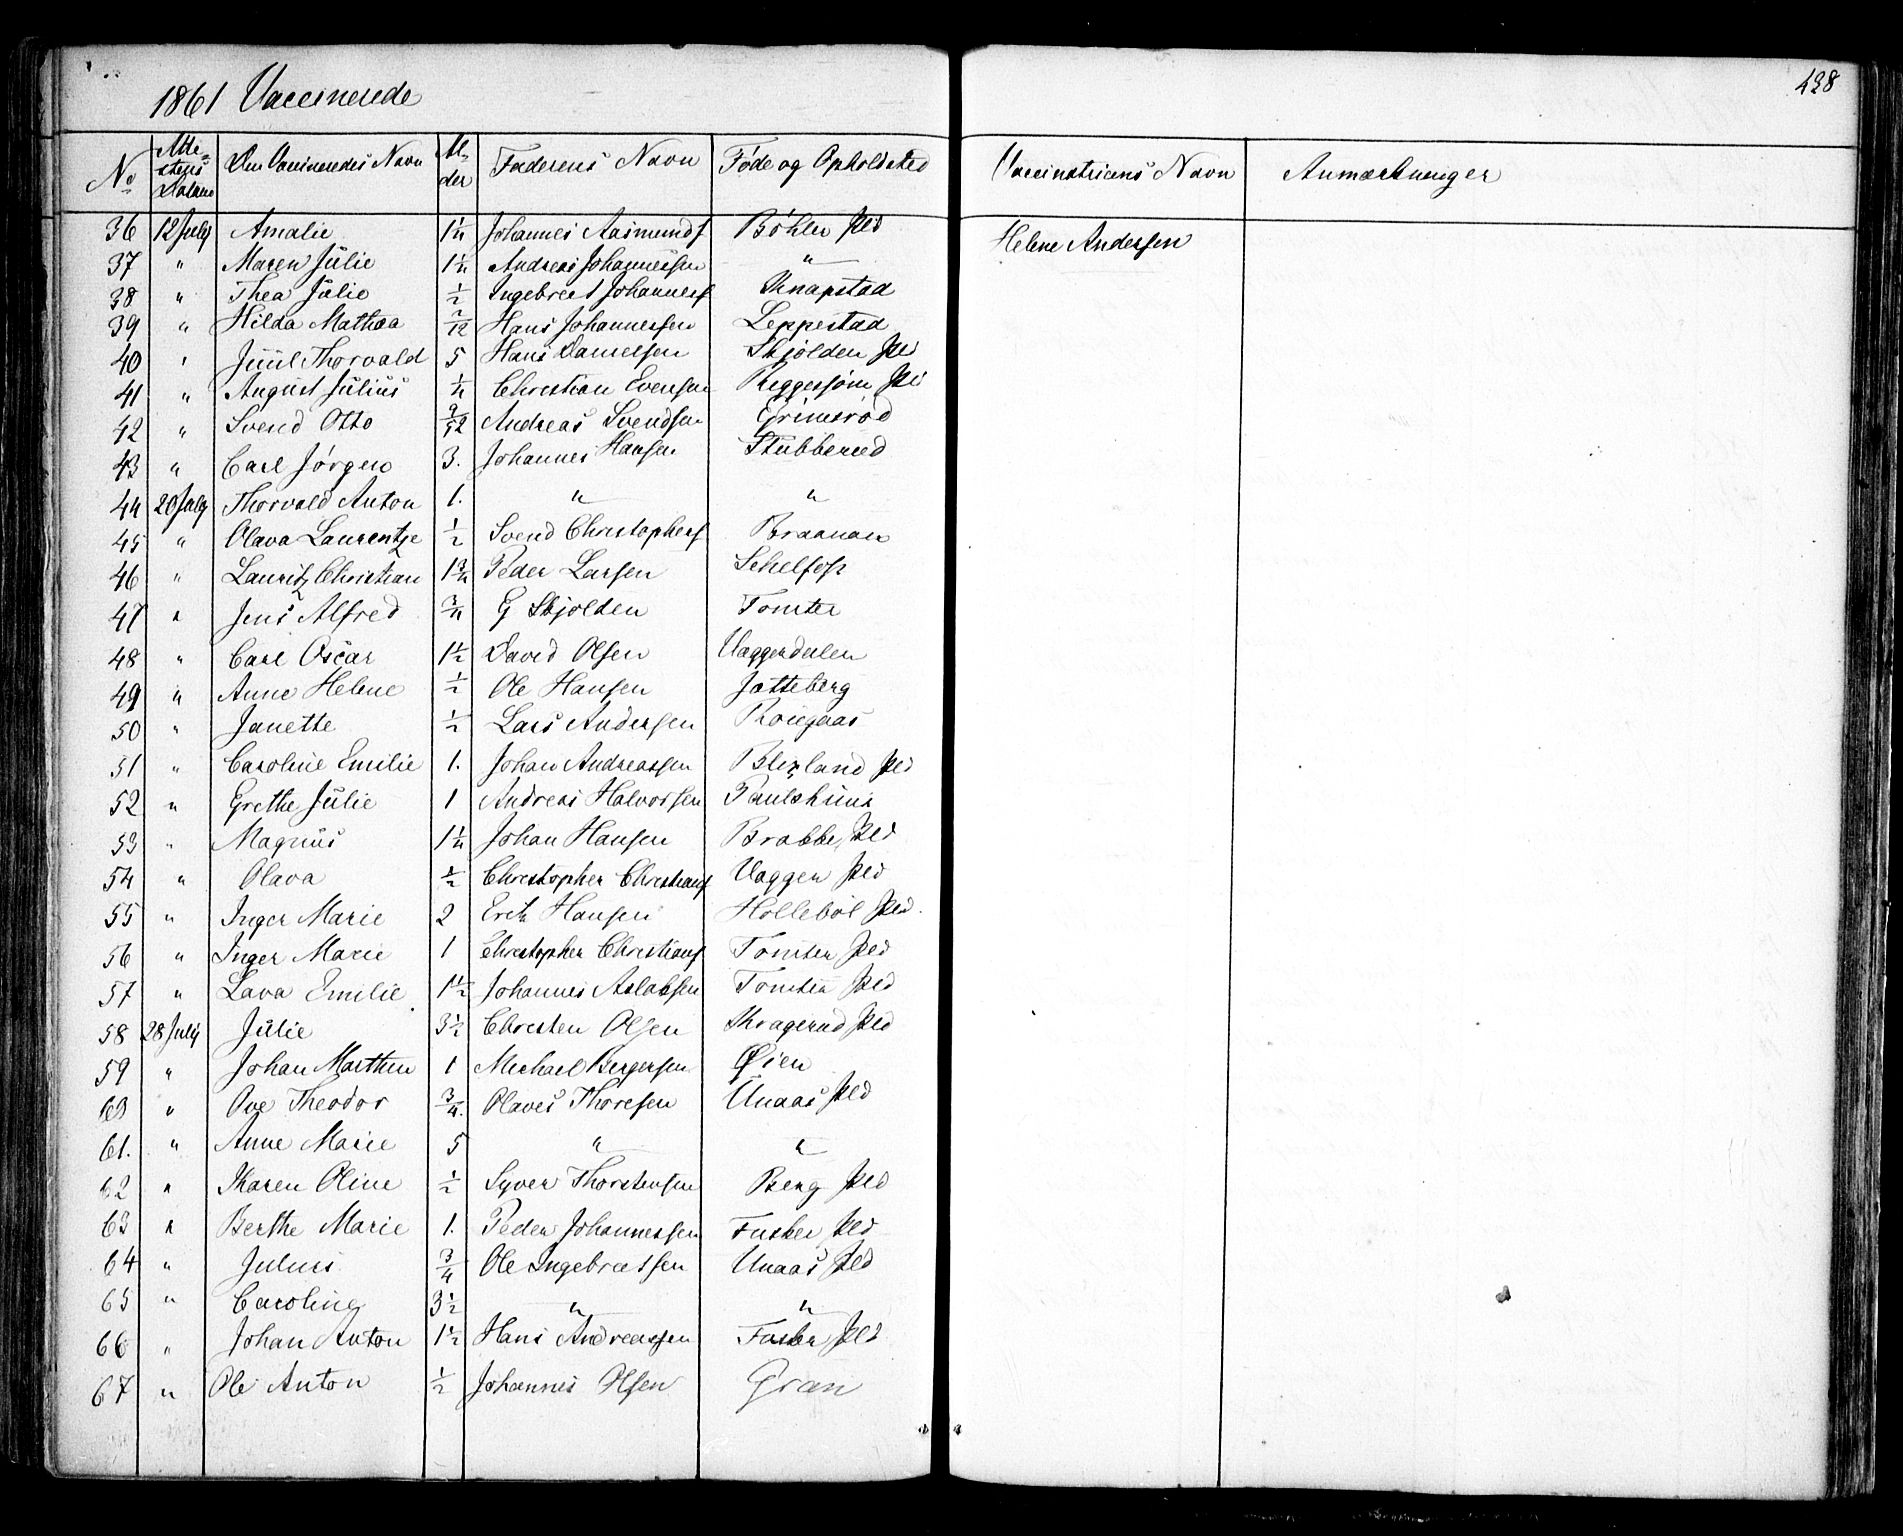 438
1861 Vaccinerede
No | Attestens Datum | Den Vaccineredes Navn | Alder | Faderens Navn | Føde og Opholdsted | Vaccinatricens Navn | Anmærkninger
36 12 July Amalie 1¼ Johannes Aasmundf Bøhler Pld Helene Andersen
37 " Maren Julie 1¼ Andreas Johannessen "
38 " Thea Julie ½ Ingebret Johannesf Knapstad
39 " Hilda Mathea 7/12 Hans Johannessen Leppestad
40 " Juul Thorvald 5 Hans Danielsen Skjolden Pld
41 " August Julius ¼ Christian Evensen Pld
42 " Svend Otto 9/12 Andreas Svendsen Grimsrød
43 " Carl Jørgen 3. Johannes Hansen Stubberud
44 20 July Thorvald Anton 1. " "
45 " Olava Laurentze ½ Svend Christophersf Braanaas
46 " Lauritz Christian 1¾ Peder Larsen Schelfoss
47 " Jens Alfred ¾ G Skjolden Tomter
48 " Carl Oscar 1½ David Olsen Vaggerdalen
49 " Anne Helene ½ Ole Hansen Jotteberg
50 " Janette ½ Lars Andersen
51 " Caroline Emilie 1. Johan Andreassen Blixland Pld
52 " Grethe Julie 1 Andreas Halvorsen Paulshuus
53 " Magnus 1¼ Johan Hansen Brakke Pld
54 " Olava ½ Christopher Christiansf Vaggen Pld
55 " Inger Marie 2 Erik Hansen Holleböl Pld.
56 " Inger Marie 1 Christopher Christiansf Tomter Pld
57 " Lava Emilie 1½ Johannes Aslaksen Tomter Pld
58 28 July Julie 3½ Christen Olsen Kragerud Pld
59 " Johan Marthin 1 Michael Bergersen Øien
" Ove Theodor ¾. Olaves Thoresen Unaas Pld
61. " Anne Marie 5 " "
62 " Karen Oline ½ Syver Thorstensen Berg Pld
63 " Berthe Marie 1. Peder Johannessen Fusker Pld
64 " Julius ¾ Ole Ingebretsen Unaas Pld
65 " Caroline 3½ " "
66 " Johan Anton 1½ Hans Andreassen Fusker Pld
67 " Ole Anton ½ Johannes Olsen Gran